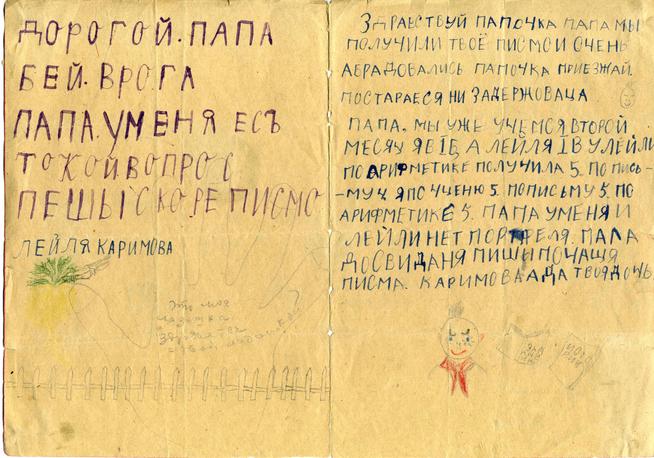 ДОРОГОЙ. ПАПА
БЕЙ. ВРОГА
ПАПА. УМЕНЯ ЕСЪ
ТОКОЙ ВОПРОС
ПЕШЫ СКОРЕ ПИСМО
ЛЕЙЛЯ КАРИМОВА
Это моя
ЗДРАВСТВУЙ ПАПОЧКА ПАПА МЫ
ПОЛУЧИЛИ ТВОЁ ПИСМО И ОЧЕНЬ
АБРАДОВАЛИСЬ ПАПОЧКА ПРИЕЗЖАЙ.
ПОСТАРАЕСЯ НИ ЗАДЕРЖОВАЦА
ПАПА. МЫ УЖЕ УЧЕМСЯ ВТОРОЙ
МЕСЯЦ Я В IЦ А ЛЕЙЛЯ IВ У ЛЕЙЛИ
ПО АРИФМЕТИКЕ ПОЛУЧИЛА 5. ПО ПИСЬ-
-МУ 4 Я ПО ЧЧЕНЮ 5. ПО ПИСЬМУ 5. ПО
АРИФМЕТИКЕ 5. ПАПА У МЕНЯ И
ЛЕЙЛИ НЕТ ПОРТФЕЛЯ. ПАПА
ДОСВИДАНЯ ПИШЫ ПОЧАЩЯ
ПИСМА. КАРИМОВА АДА ТВОЯ ДОЧЬ